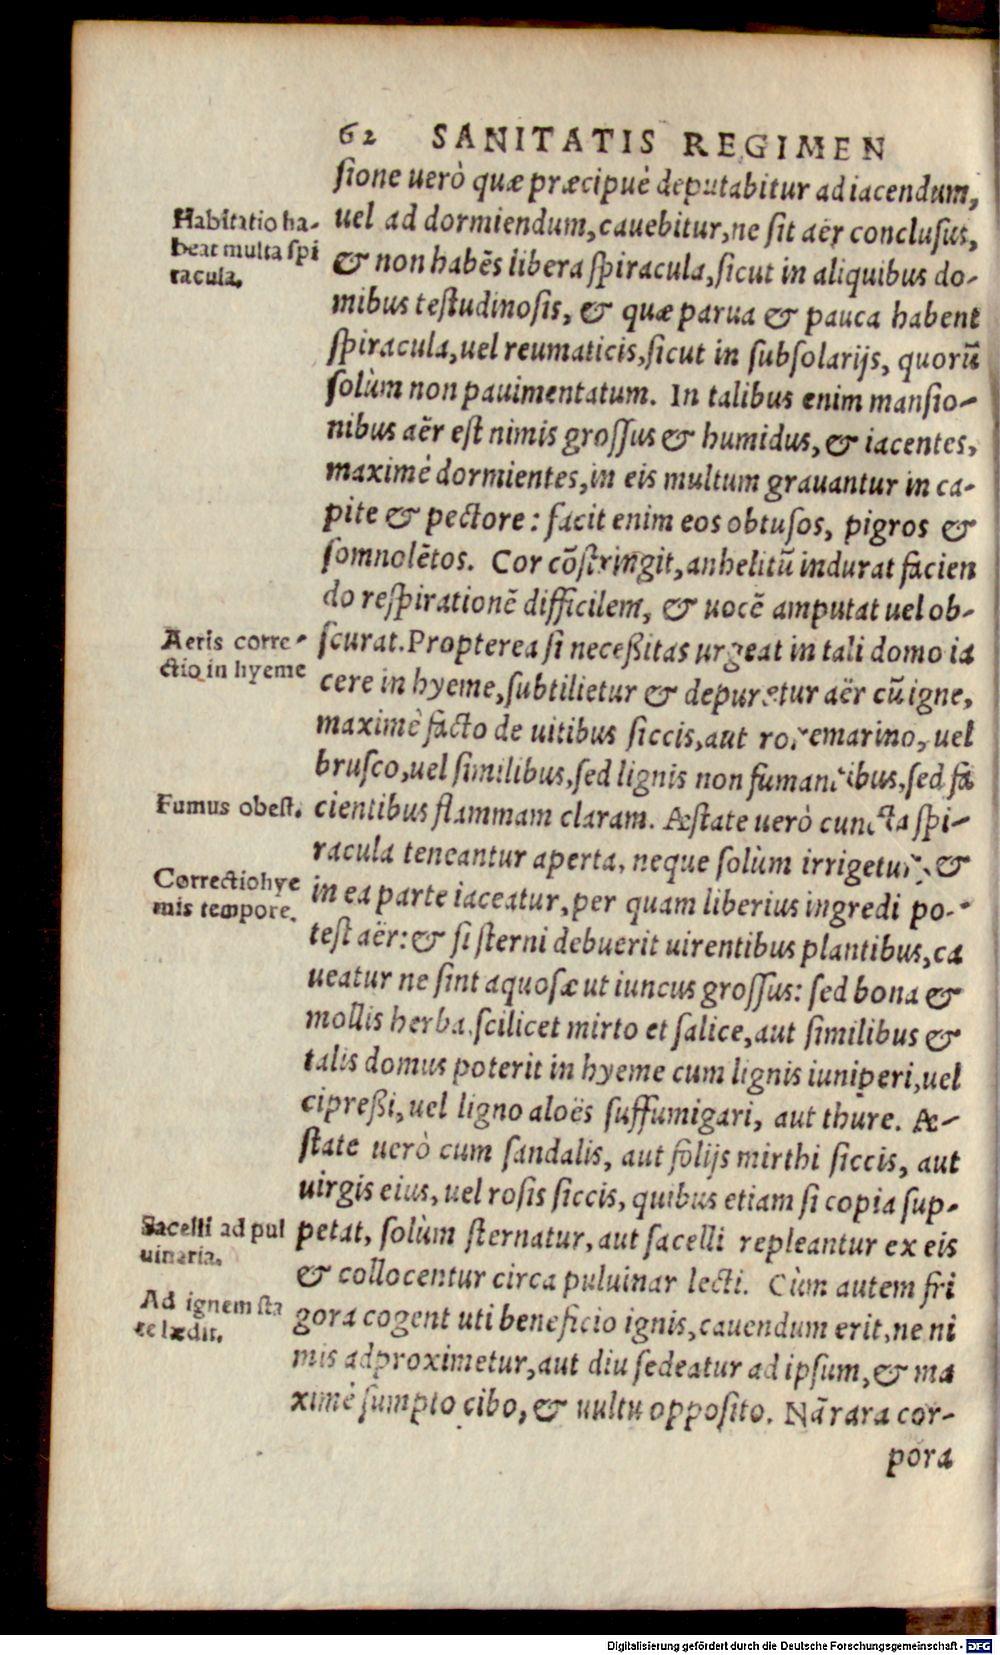 62 SANITATIS REGIMEN
sione uerò quæ præcipuè deputabitur ad iacendum,
Habitatio ha-
beat multa spi
racula.
uel ad dormiendum, cauebitur, ne sit aër conclusus,
& non habẽs libera spiracula, sicut in aliquibus do-
mibus testudinosis, & quæ parua & pauca habent
spiracula, uel reumaticis, sicut in subsolarijs, quorũ
solùm non pauimentatum. In talibus enim mansio-
nibus aër est nimis grossus & humidus, & iacentes,
maximè dormientes, in eis multum grauantur in ca-
pite & pectore: facit enim eos obtusos, pigros &
somnolẽtos. Cor cõstringit, anhelitũ indurat facien
do respirationẽ difficilem, & uocẽ amputat uel ob-
Aeris corre-
ctio in hyeme
scurat. Propterea si necessitas urgeat in tali domo ia
cere in hyeme, subtilietur & depuretur aër cũ igne,
maximè facto de uitibus siccis, aut roremarino, uel
brusco, uel similibus, sed lignis non fumantibus, sed fa
Fumus obest.
cientibus flammam claram. Æstate uerò cuncta spi-
racula teneantur aperta, neque solùm irrigetur, &
Correctio hye
mis tempore.
in ea parte iaceatur, per quam liberius ingredi po-
test aër: & si sterni debuerit uirentibus plantibus, ca
ueatur ne sint aquosæ ut iuncus grossus: sed bona &
mollis herba, scilicet mirto et salice, aut similibus &
talis domus poterit in hyeme cum lignis iuniperi, uel
cipressi, uel ligno aloës suffumigari, aut thure. Æ-
state uerò cum sandalis, aut folijs mirthi siccis, aut
uirgis eius, uel rosis siccis, quibus etiam si copia sup-
Sacelli ad pul
uinaria.
petat, solùm sternatur, aut sacelli repleantur ex eis
& collocentur circa puluinar lecti. Cùm autem fri
Ad ignem sta
re lædit.
gora cogent uti beneficio ignis, cauendum erit, ne ni
mis adproximetur, aut diu sedeatur ad ipsum, & ma
ximè sumpto cibo, & uultu opposito. Nã rara cor-
pora
Digitalisierung gefördert durch die Deutsche Forschungsgemeinschaft - DFG